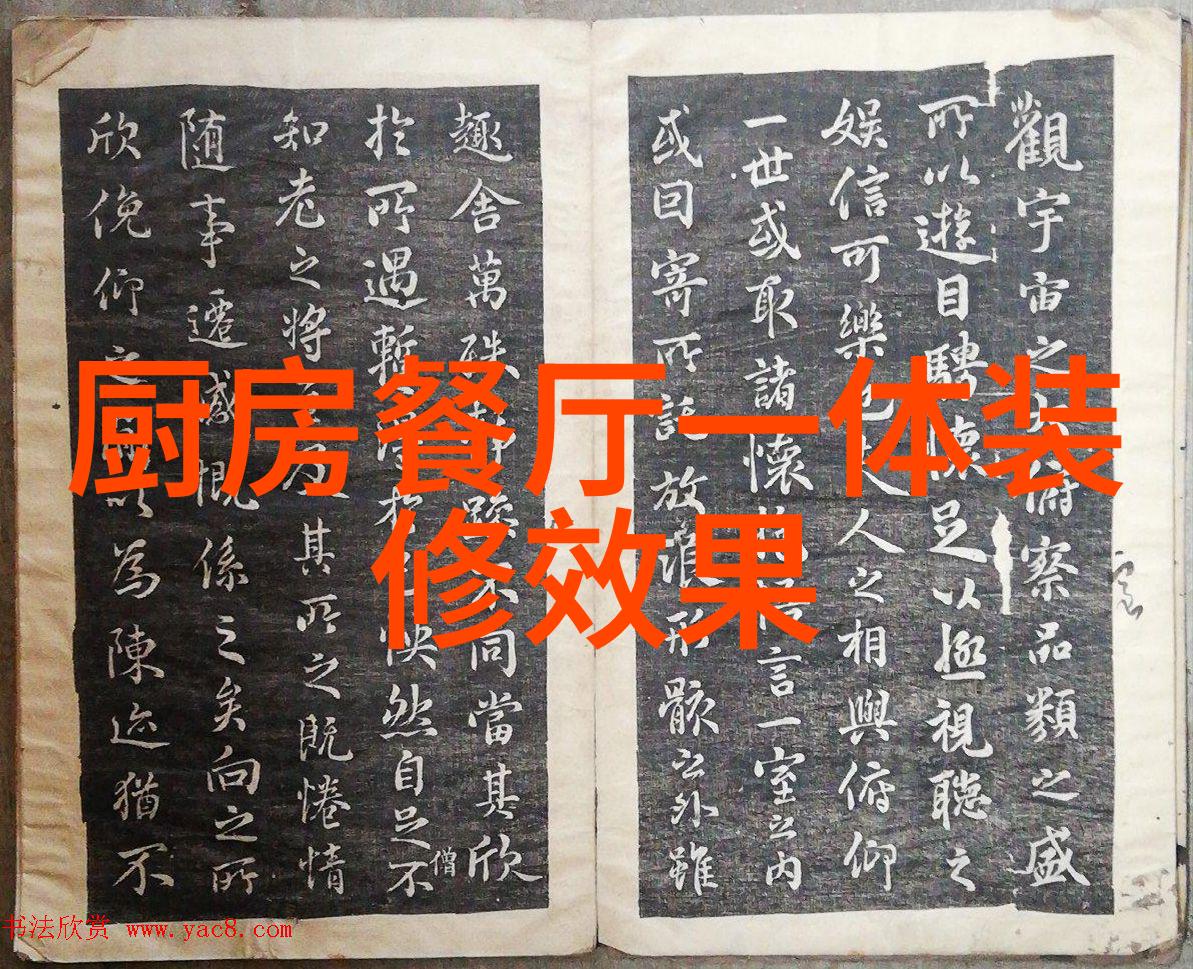 厨房餐厅一体装
修效果
觀宇宙之俯察品類之盛
所以遊目騁懷足以極視聽之
娱信可樂也夫人之相與俯仰
一世或取諸懷言一室之内
或因寄所託放浪形骸之外雖
趣舍萬殊躁不同當其欣
僧
於所遇暫快然自足不
知老之將其所之既惓情
随事遷感慨係之矣向之所
欣俛仰之以為陳迹猶不
书法欣赏 www.yac8.com